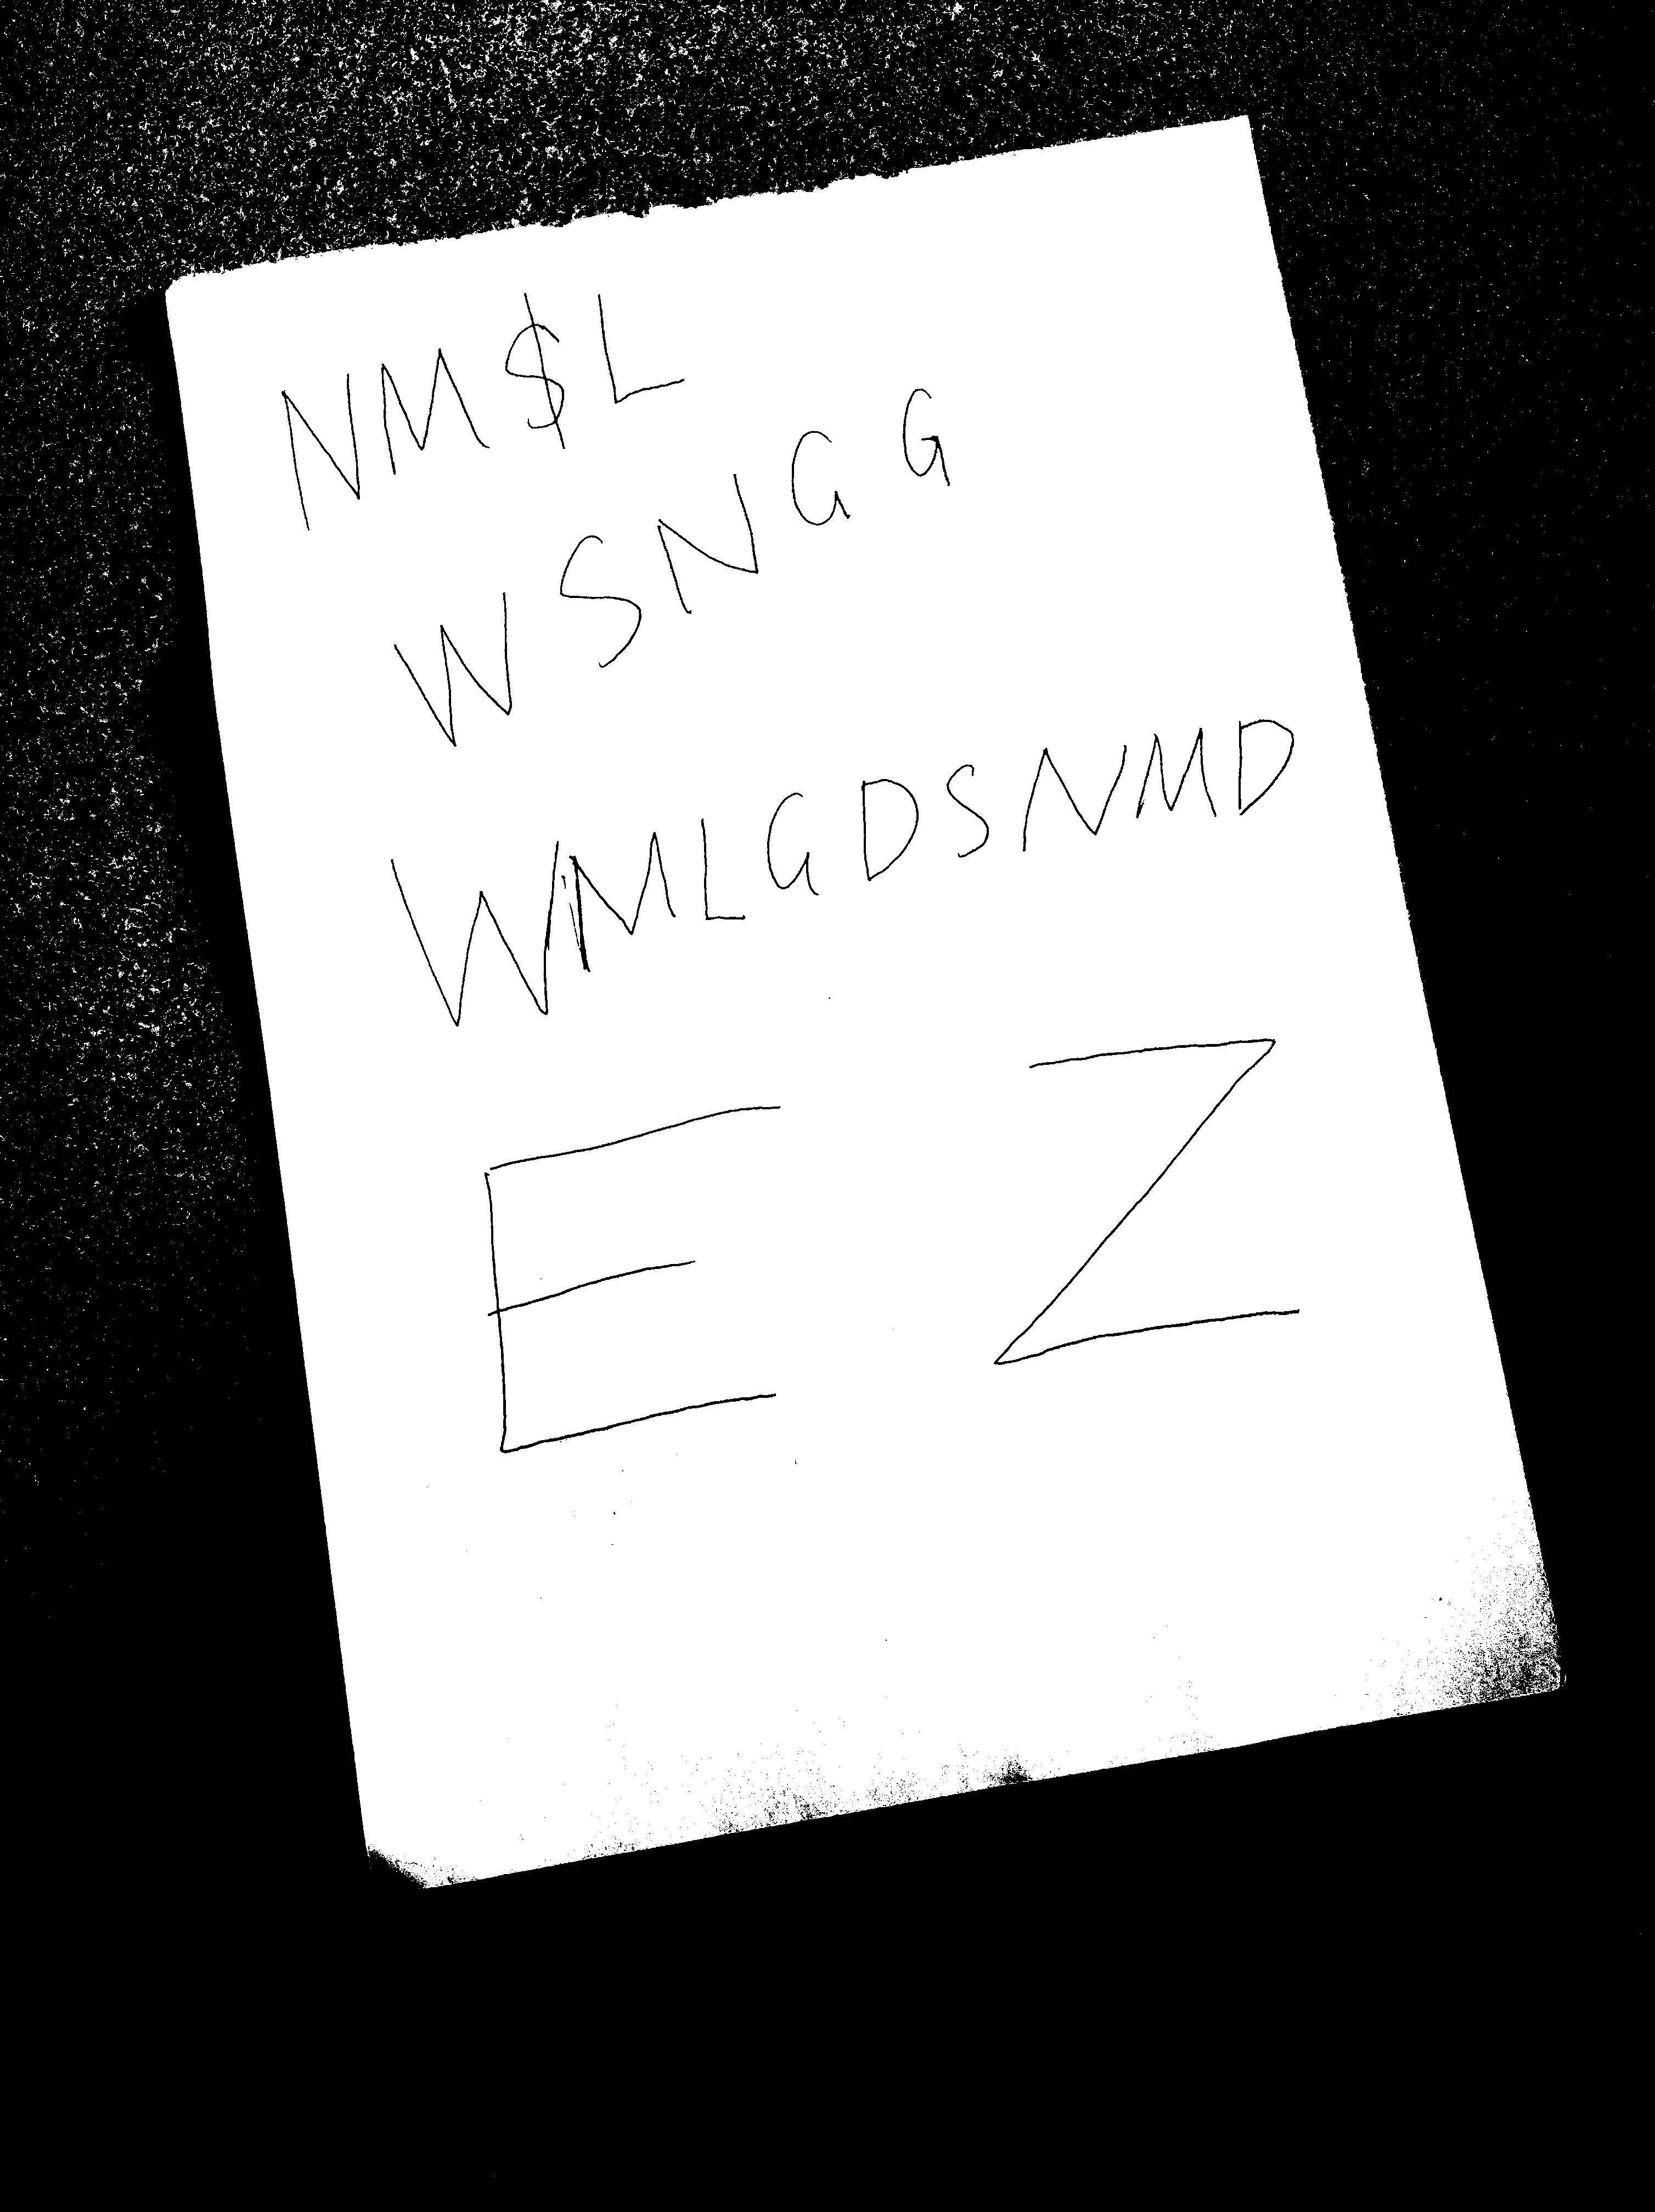 NM$L
WSNGG
WMLGDSNMD
EZ